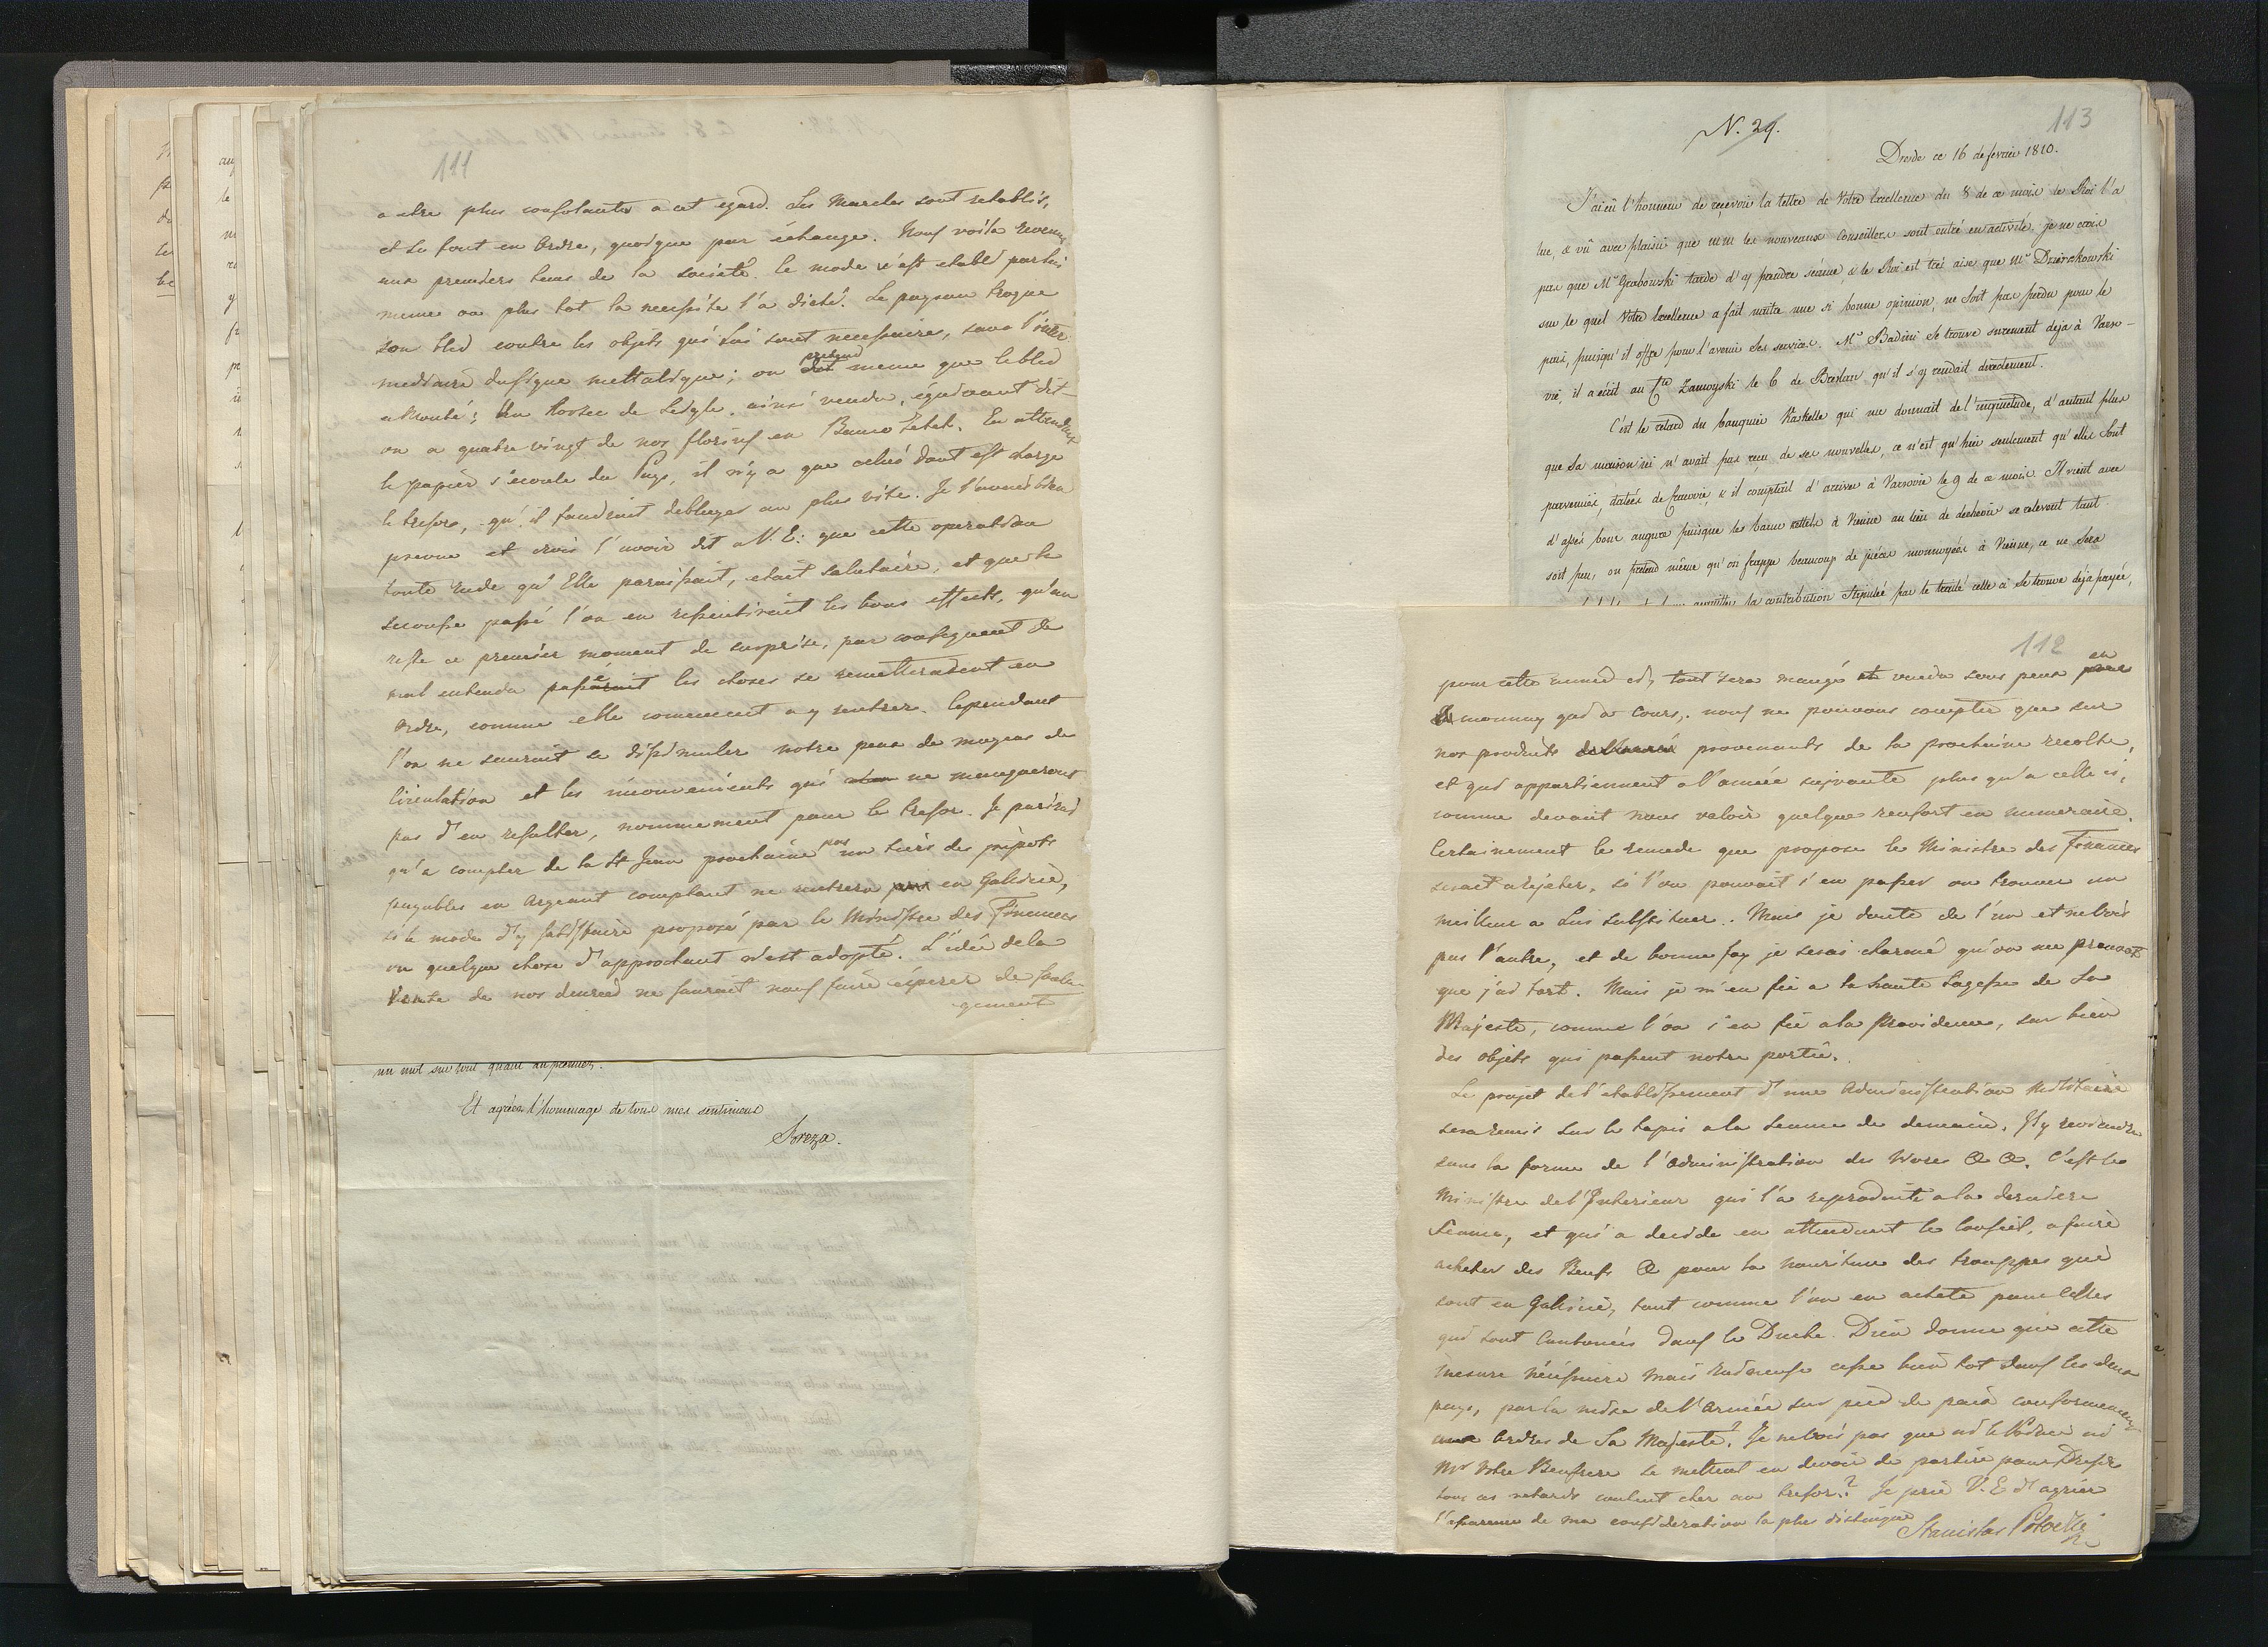 111
a etre plus consolantes a cet egard. Les Marches sont retablis,
et se font en Ordre, quoique par échange. Nous voila revenus
aux premiers tems de la societé. Ce mode s'est etabli par lui
meme ou plus tot la necessite l'a dicté. Le paysan troque
son bled contre les objets qui lui sont necessaires, sans l'inter
mediaire du signe mettalique; on pretend meme que le bled
a Monté; Un Korsec de Seigle, ainsi vendu, équivaut dit-
on a quatre vingt de nos florins en Banco Zetel. En attendant
le papier s'ecoule du Pays, il n'y a que celui dont est charge
le tresor, qu'il faudroit debiter au plus vite. Je l'avois bien
prevue et crois l'avoir dit a V. E: que cette operation
toute rude qu'Elle paraissait, etait salutaire, et que la
secousse passé l'on en ressentirait les bons effects, qu'au
reste ce premier moment de surprise, par consequent de
mal entendu passé les choses se remetteraient en
Ordre, comme elle comencent a y rentrer. Cependant
l'on ne sauroit se dissimuler notre peu de moyens de
Circulation et les inconvenients qui ne manqueront
pas d'en resulter, nommement pour le tresor. Je parirai
qu'a compter de la St Jean prochaine pas un tiers des impots
payables en Argeant comptant ne rentrera en Galicie,
si le mode d'y satisfaire proposé par le Ministre des Finances
ou quelque chose d'approchant n'est adopté. L'idée de la
Vente de nos denrees ne sauroit nous faire ésperer de soula-
gement
un mot sur tout quant au premier.
Et agréez l'hommage de tous mes sentimens
Breza.
N. 29.
113
Dresde ce 16 de fevrier 1810.
J'ai eû l'honneur de reçevoir la lettre de Votre Excellence du 8 de ce mois le Roi l'a
lue, & vû avec plaisir que MM les nouveaux Conseillers sont entré en activité. je ne crois
pas que Mr Grabowski tarde d'y prendre séance, & le Roi est trés aise que Mr Dzierzkowski
sur le quel Votre Excellence a fait naitre une si bonne opinion, ne soit pas perdu pour le
païs, puisqu'il offre pour l'avenir ses services. Mr Badeni se trouve surement deja à Varso-
vie, il a écrit au Cte Zamoyski le 6 de Breslau qu'il s'y rendait directement.
C'est le retard du banquier Kaskelle qui me donnait de l'inquietude, d'autant plus
que sa maison ici n'avait pas reçu de ses nouvelles, ce n'est qu'hier seulement qu'elles sont
parvenuës, datées de Cracovie, & il comptait d'arriver à Varsovie le 9 de ce mois. Il vient avec
d'assés bons augures puisque les banco zettels à Vienne au lieu de dechoir se relevent tant
soit peu, on pretend même qu'on frappe beaucoup de pièces monnoyées à Vienne, ce ne sera
acquitter la contribution stipulée par le traité celle ci se trouve déja payée,
112
pour cette année ci, tout sera mangé et vendu sous peu en
monnay qui a cours, nous ne pouvons compter que sur
nos produits provenants de la prochaine recolte,
et qui appartiennent a l'année suivante plus qu'a celle ci,
comme devant nous valoir quelque renfort en numeraire.
Certainement le remede que propose le Ministre des Finances
seroit a rejeter, si l'on pouvoit s'en passer ou trouver un
meilleur a lui substituer. Mais je doute de l'un et ne vois
pas l'autre, et de bonne foy je serais charmé qu'on me prouvat
que j'ai tort. Mais je m'en fie a la haute Sagesse de Sa
Majesté, comme l'on s'en fie a la Providence, sur bien
des objets qui passent notre portée.
Le projet de l'etablissement d'une Administration Militaire
sera remis sur le tapis a la seance de demain. Il y reviendra
sous la forme de l'administration des Vivres &c &c. C'est le
Ministre de l'Interieur qui l'a reproduite a la derniere
Séance, et qui a decidé en attendant le Conseil, a faire
acheter des Beufs &c pour la nouriture des trouppes qui
sont en Galicie, tout comme l'on en achete pour celles
qui sont Cantonées dans le Duché. Dieu donne que cette
mesure nécessaire mais ruineuse cesse bien tot dans les deux
pays, par la mise de l'Armée sur pied de paix conformement
aux Ordres de Sa Majesté? Je ne vois pas que ni le Palatin ni
Mr Votre Beufrere se mettent en devoir de partir pour Dresde
tous ces retards coutent cher au tresor? Je prie V. E d'agréer
l'assurance de ma consideration la plus distinguée
Stanislas Potocki